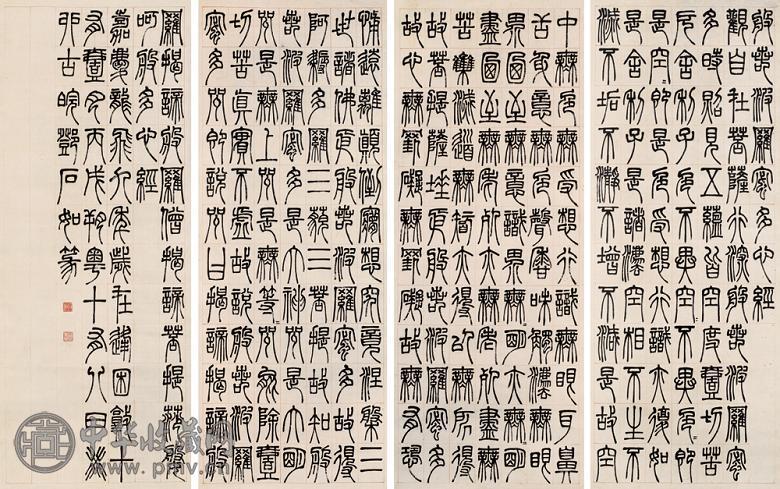 般若波羅蜜多心經
觀自在菩薩行深般若波羅蜜
多時照見五蘊皆空度一切苦
厄舍利子色不異空空不異色色即
是空空即是色受想行識亦復如
是舍利子是諸法空相不生不
滅不垢不淨不增不減是故空
中無色無受想行識無眼耳鼻
舌身意無色聲香味觸法無眼
界乃至無意識界無無明亦無無明
盡乃至無老死亦無老死盡無
苦集滅道無智亦無得以無所得
故菩提薩埵依般若波羅蜜多
故心無罣礙無罣礙故無有恐
怖遠離顛倒夢想究竟涅槃三
世諸佛依般若波羅蜜多故得
阿耨多羅三藐三菩提故知般
若波羅蜜多是大神咒是大明
咒是無上咒是無等等咒能除一
切苦真實不虛故說般若波羅
蜜多咒即說咒曰揭諦揭諦般
羅揭諦般羅僧揭諦菩提薩婆
呵般若多心經
嘉慶龍飛九年歲在逢困敦十
有一月丙戌朔粵十有八日癸
卯古皖鄧石如篆
中华收藏网